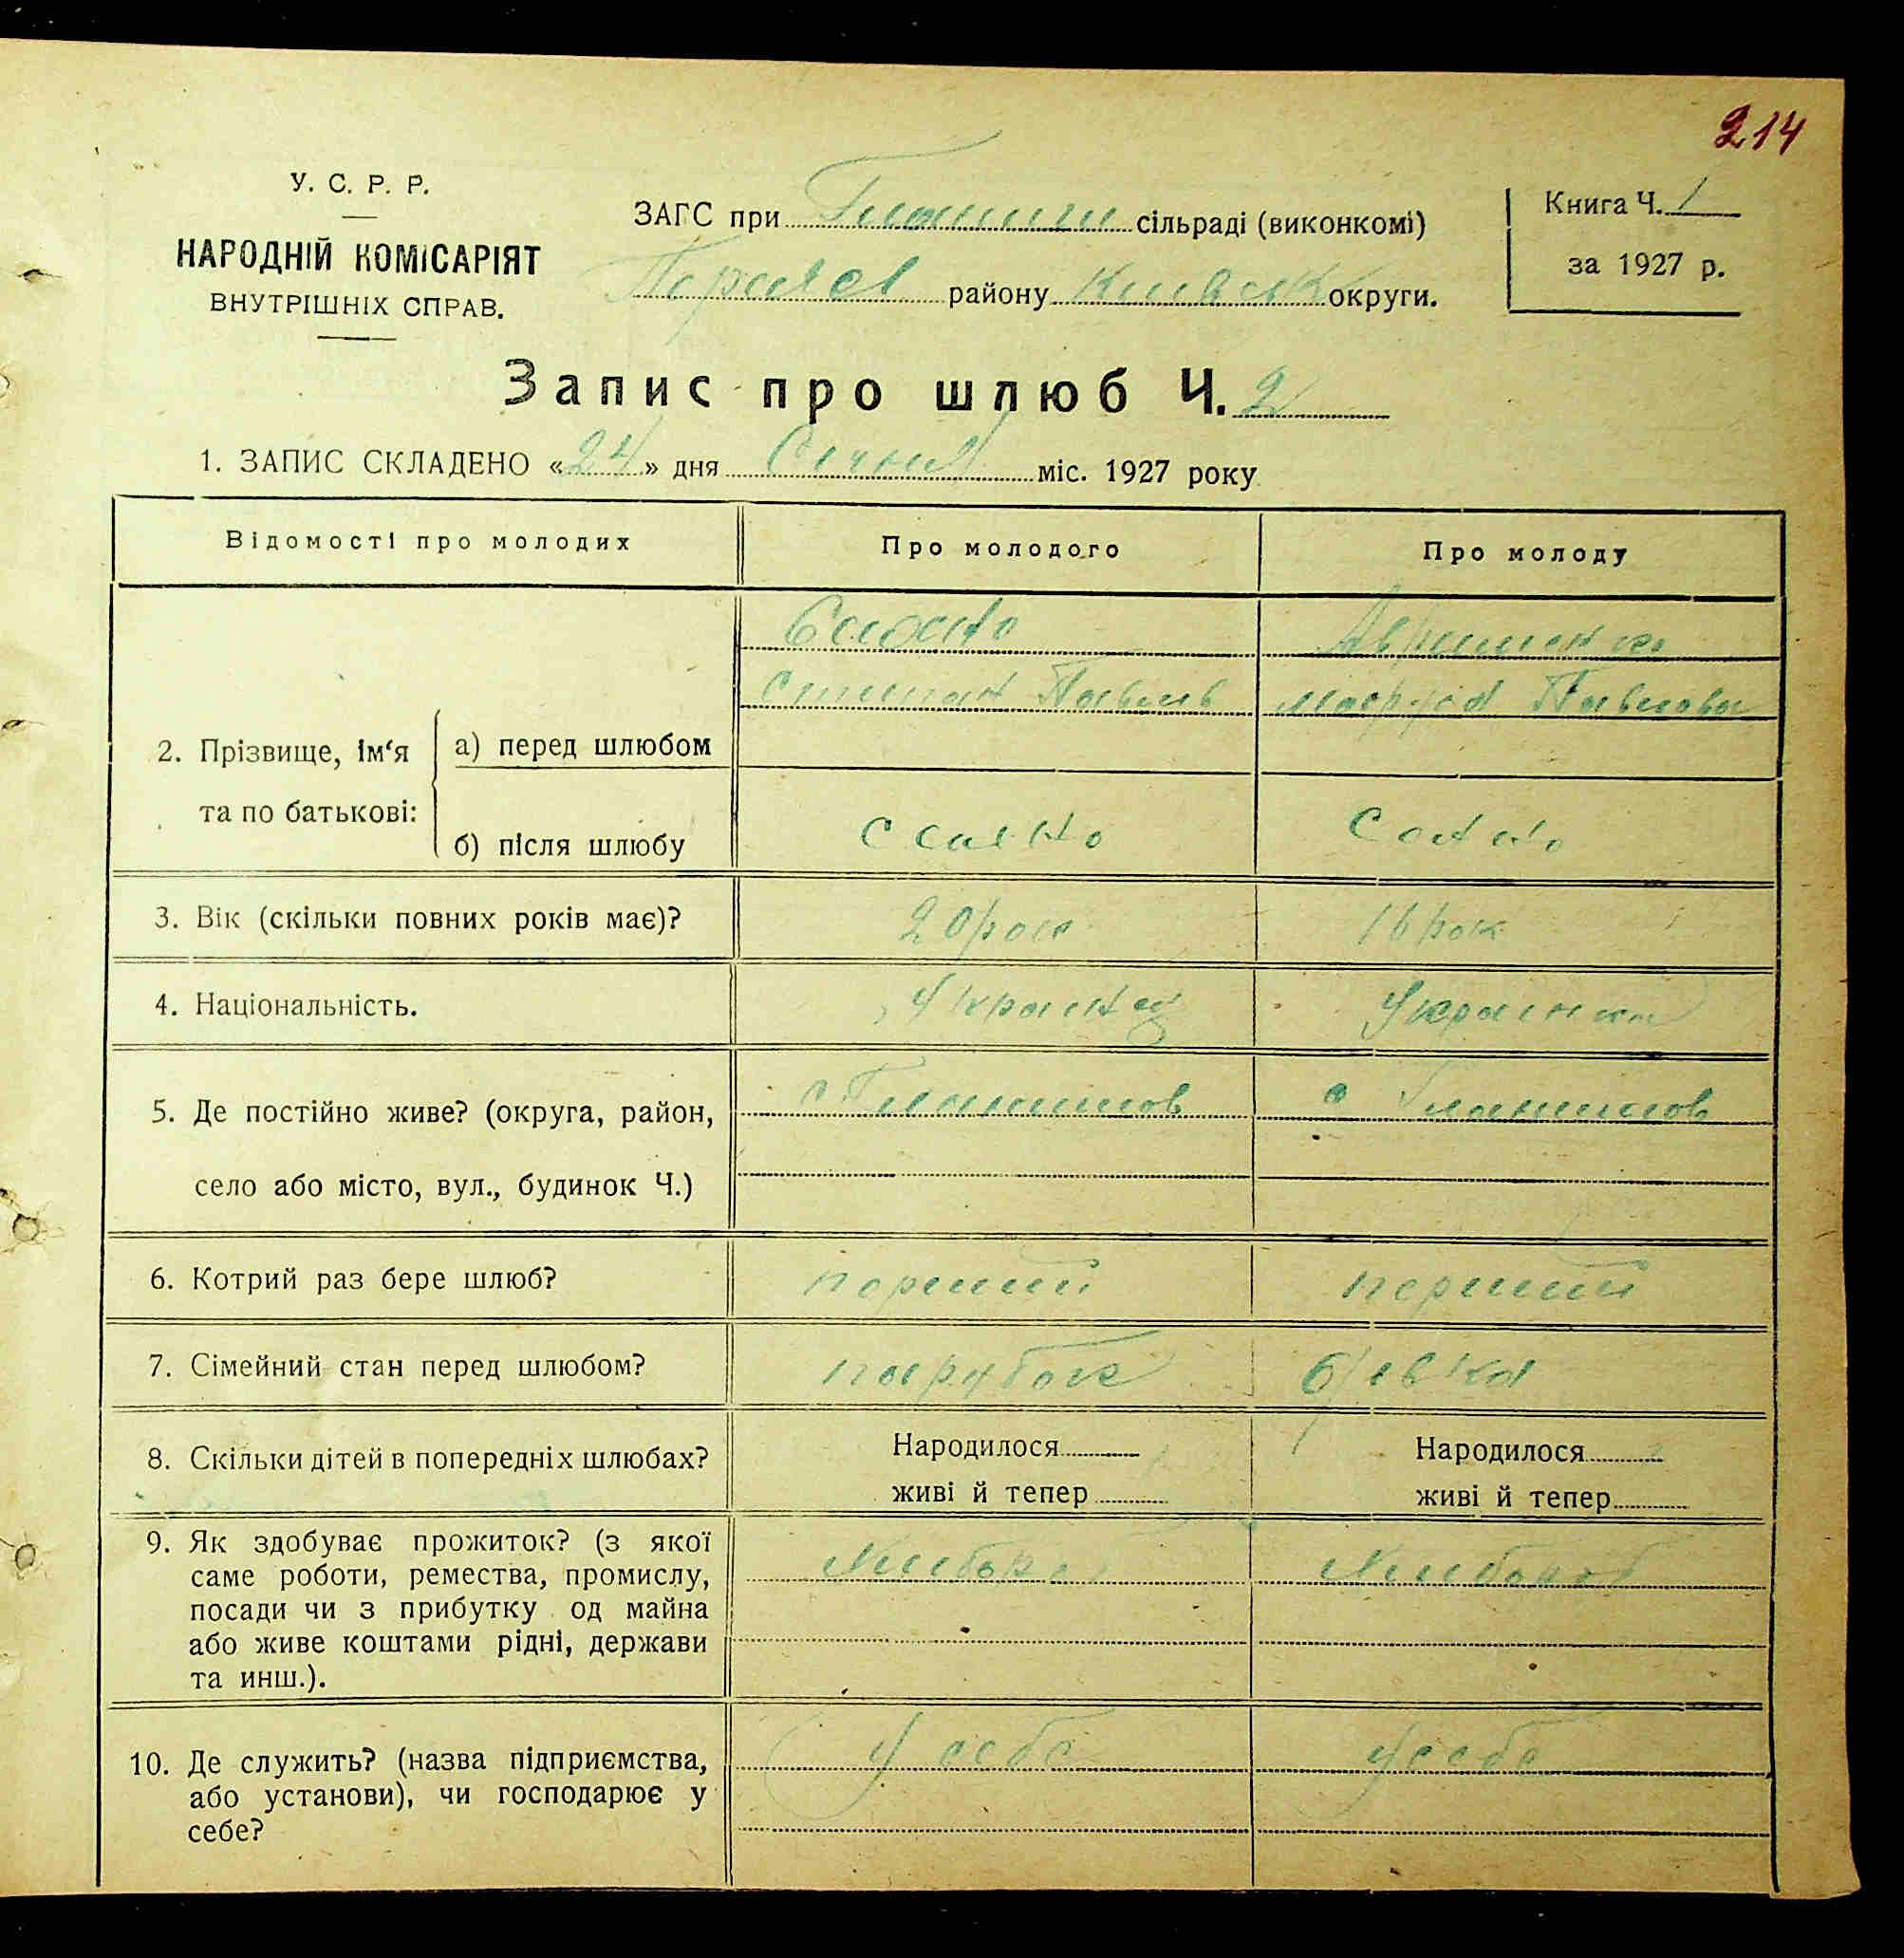 214
У. С. Р. Р.
НАРОДНІЙ КОМІСАРІЯТ
ВНУТРІШНІХ СПРАВ.
ЗАГС при сільраді (виконкомі)
району округи.
Книга Ч. 1
за 1927 р.
Запис про шлюб Ч. 2
1. ЗАПИС СКЛАДЕНО «24» дня Січня міс. 1927 року
Відомості про молодих Про молодого Про молоду
2. Прізвище, ім‘я та по батькові:
а) перед шлюбом
Степан Павлів
Павлова
б) після шлюбу
3. Вік (скільки повних років має)? 20 рок
рок
4. Національність. Українец Українка
5. Де постійно живе? (округа, район,
село або місто, вул., будинок Ч.)
с. Гланишов с Гланишов
6. Котрий раз бере шлюб? перший перший
7. Сімейний стан перед шлюбом? парубок
8. Скільки дітей в попередніх шлюбах? Народилося Народилося
живі й тепер живі й тепер
9. Як здобуває прожиток? (з якої
саме роботи, ремества, промислу,
посади чи з прибутку од майна
або живе коштами рідні, держави
та инш.).
10. Де служить? (назва підприємства,
або установи), чи господарює у
себе?
У себе У себе